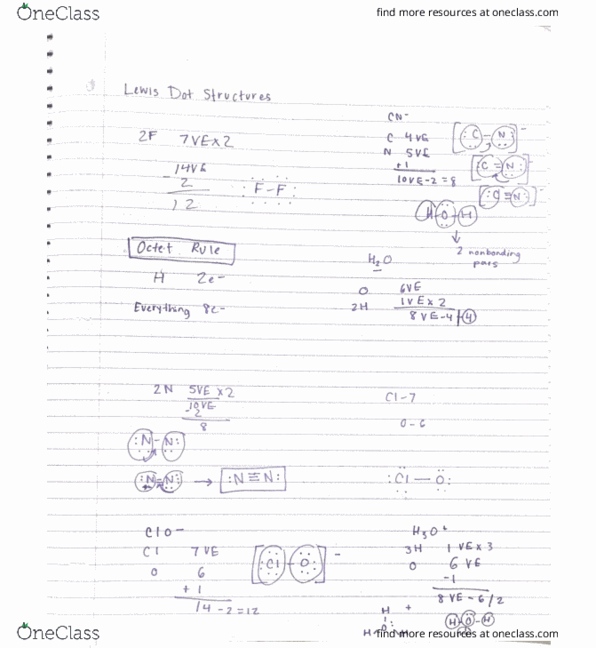 OneClass
find more resources at oneclass.com
Lewis Dot Structures
2F 7VE x 2
14VE
- 2
12
:F-F:
CN-
C 4VE
N 5VE
+1
10VE-2=8
[:C-N:]-
[:C=N:]-
[:C≡N:]-
H-O-H
2 nonbonding
pairs
Octet Rule
H 2e-
Everything 8e-
H2O
O 6VE
2H 1VE x 2
8VE-4 = 4
2N 5VE x 2
10VE
-2
8
:N-N:
:N=N: → :N≡N:
Cl-7
O-6
:Cl-O:
ClO-
Cl 7VE
O 6
+ 1
14-2=12
[:Cl-O:]-
H3O+
3H 1VE x 3
O 6VE
-1
8VE-6/2
H +
H-O-H
OneClass
find more resources at oneclass.com